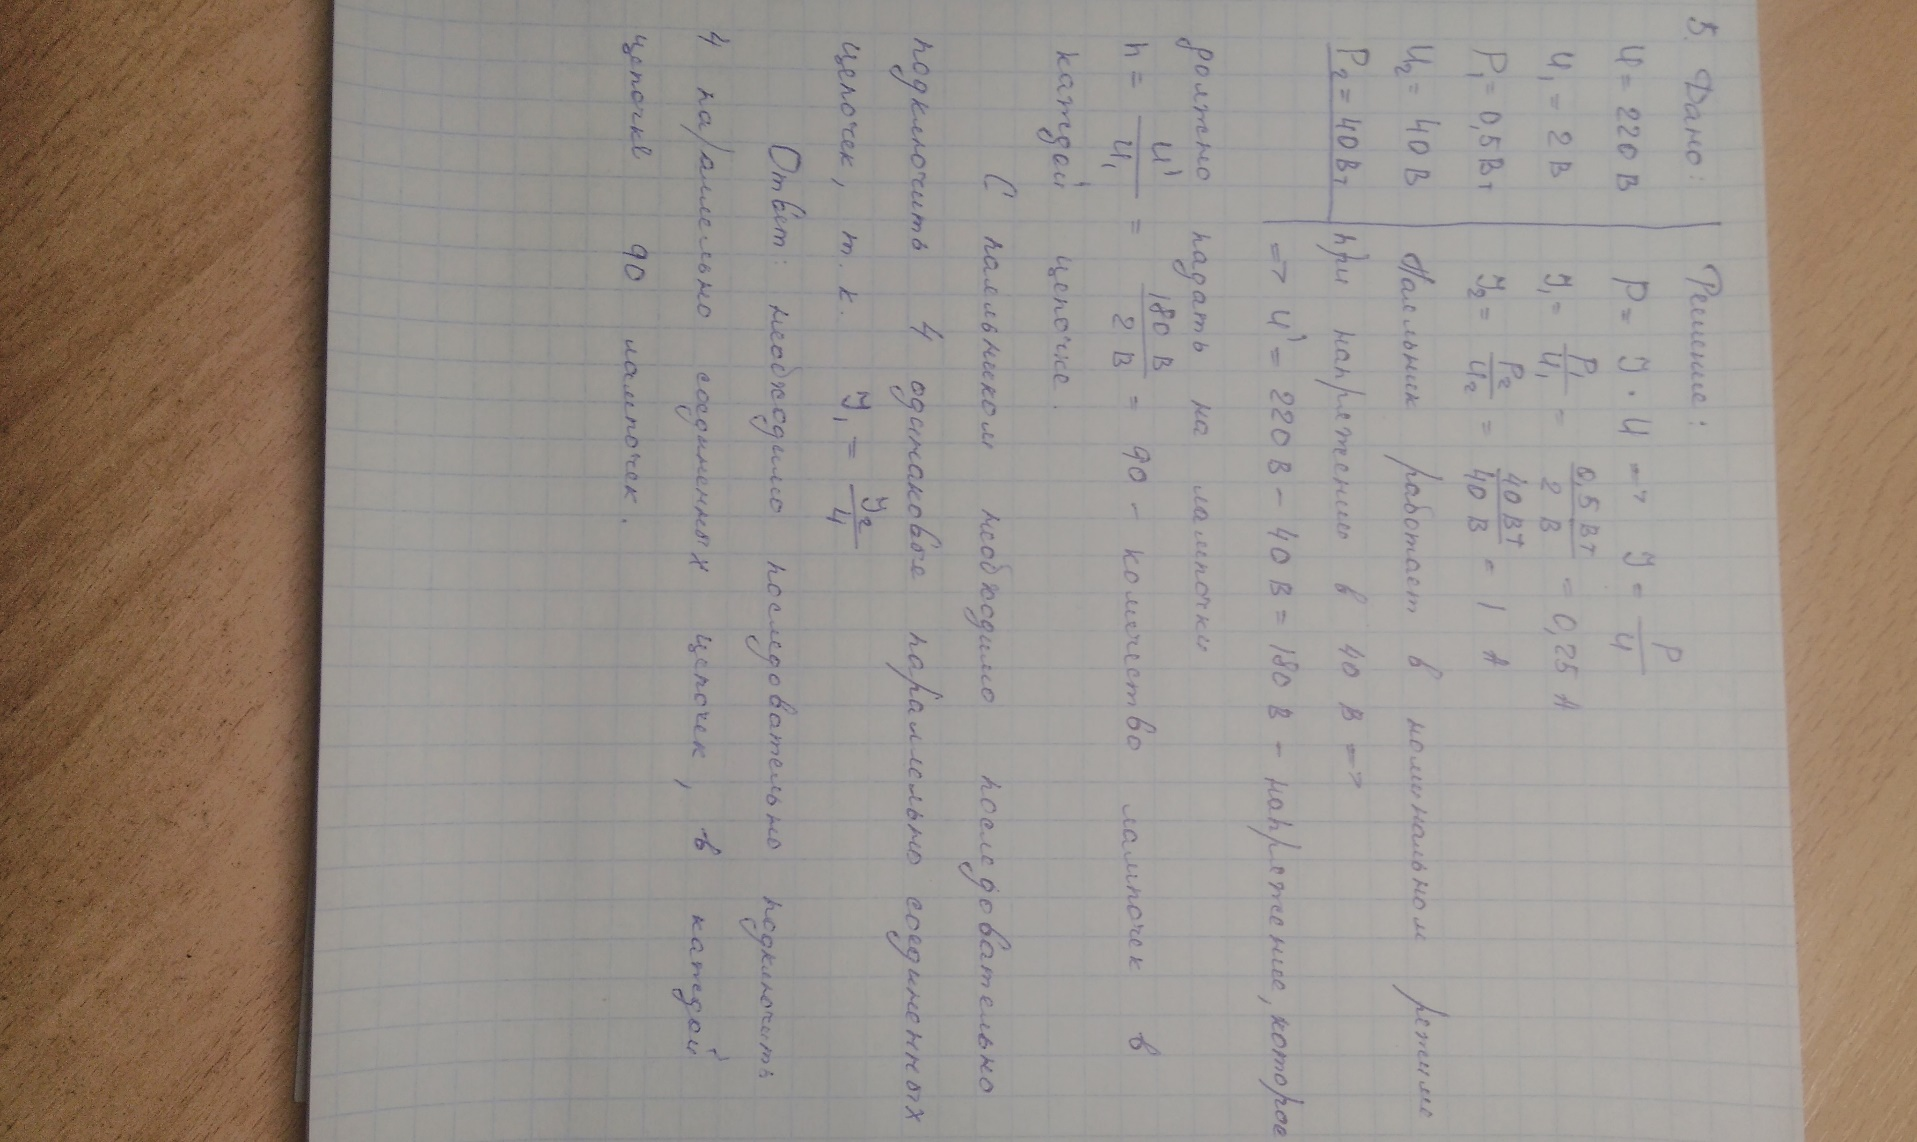 5. Дано:
U = 220 В
U₁ = 2 В
P₁ = 0,5 Вт
U₂ = 40 В
P₂ = 40 Вт
Решение:
P = I · U => I = P/U
I₁ = P₁/U₁ = 0,5 Вт/2 В = 0,25 А
I₂ = P₂/U₂ = 40 Вт/40 В = 1 А
Паяльник работает в номинальном режиме
при напряжении в 40 В =>
=> U' = 220 В - 40 В = 180 В - напряжение, которое
должно падать на лампочки
n = U'/U₁ = 180 В/2 В = 90 - количество лампочек в
каждой цепочке.
С паяльником необходимо последовательно
подключить 4 одинаковые параллельно соединенных
цепочек, т. к. I₁ = I₂/4
Ответ: необходимо последовательно подключить
4 параллельно соединенных цепочек, в каждой
цепочке 90 лампочек.